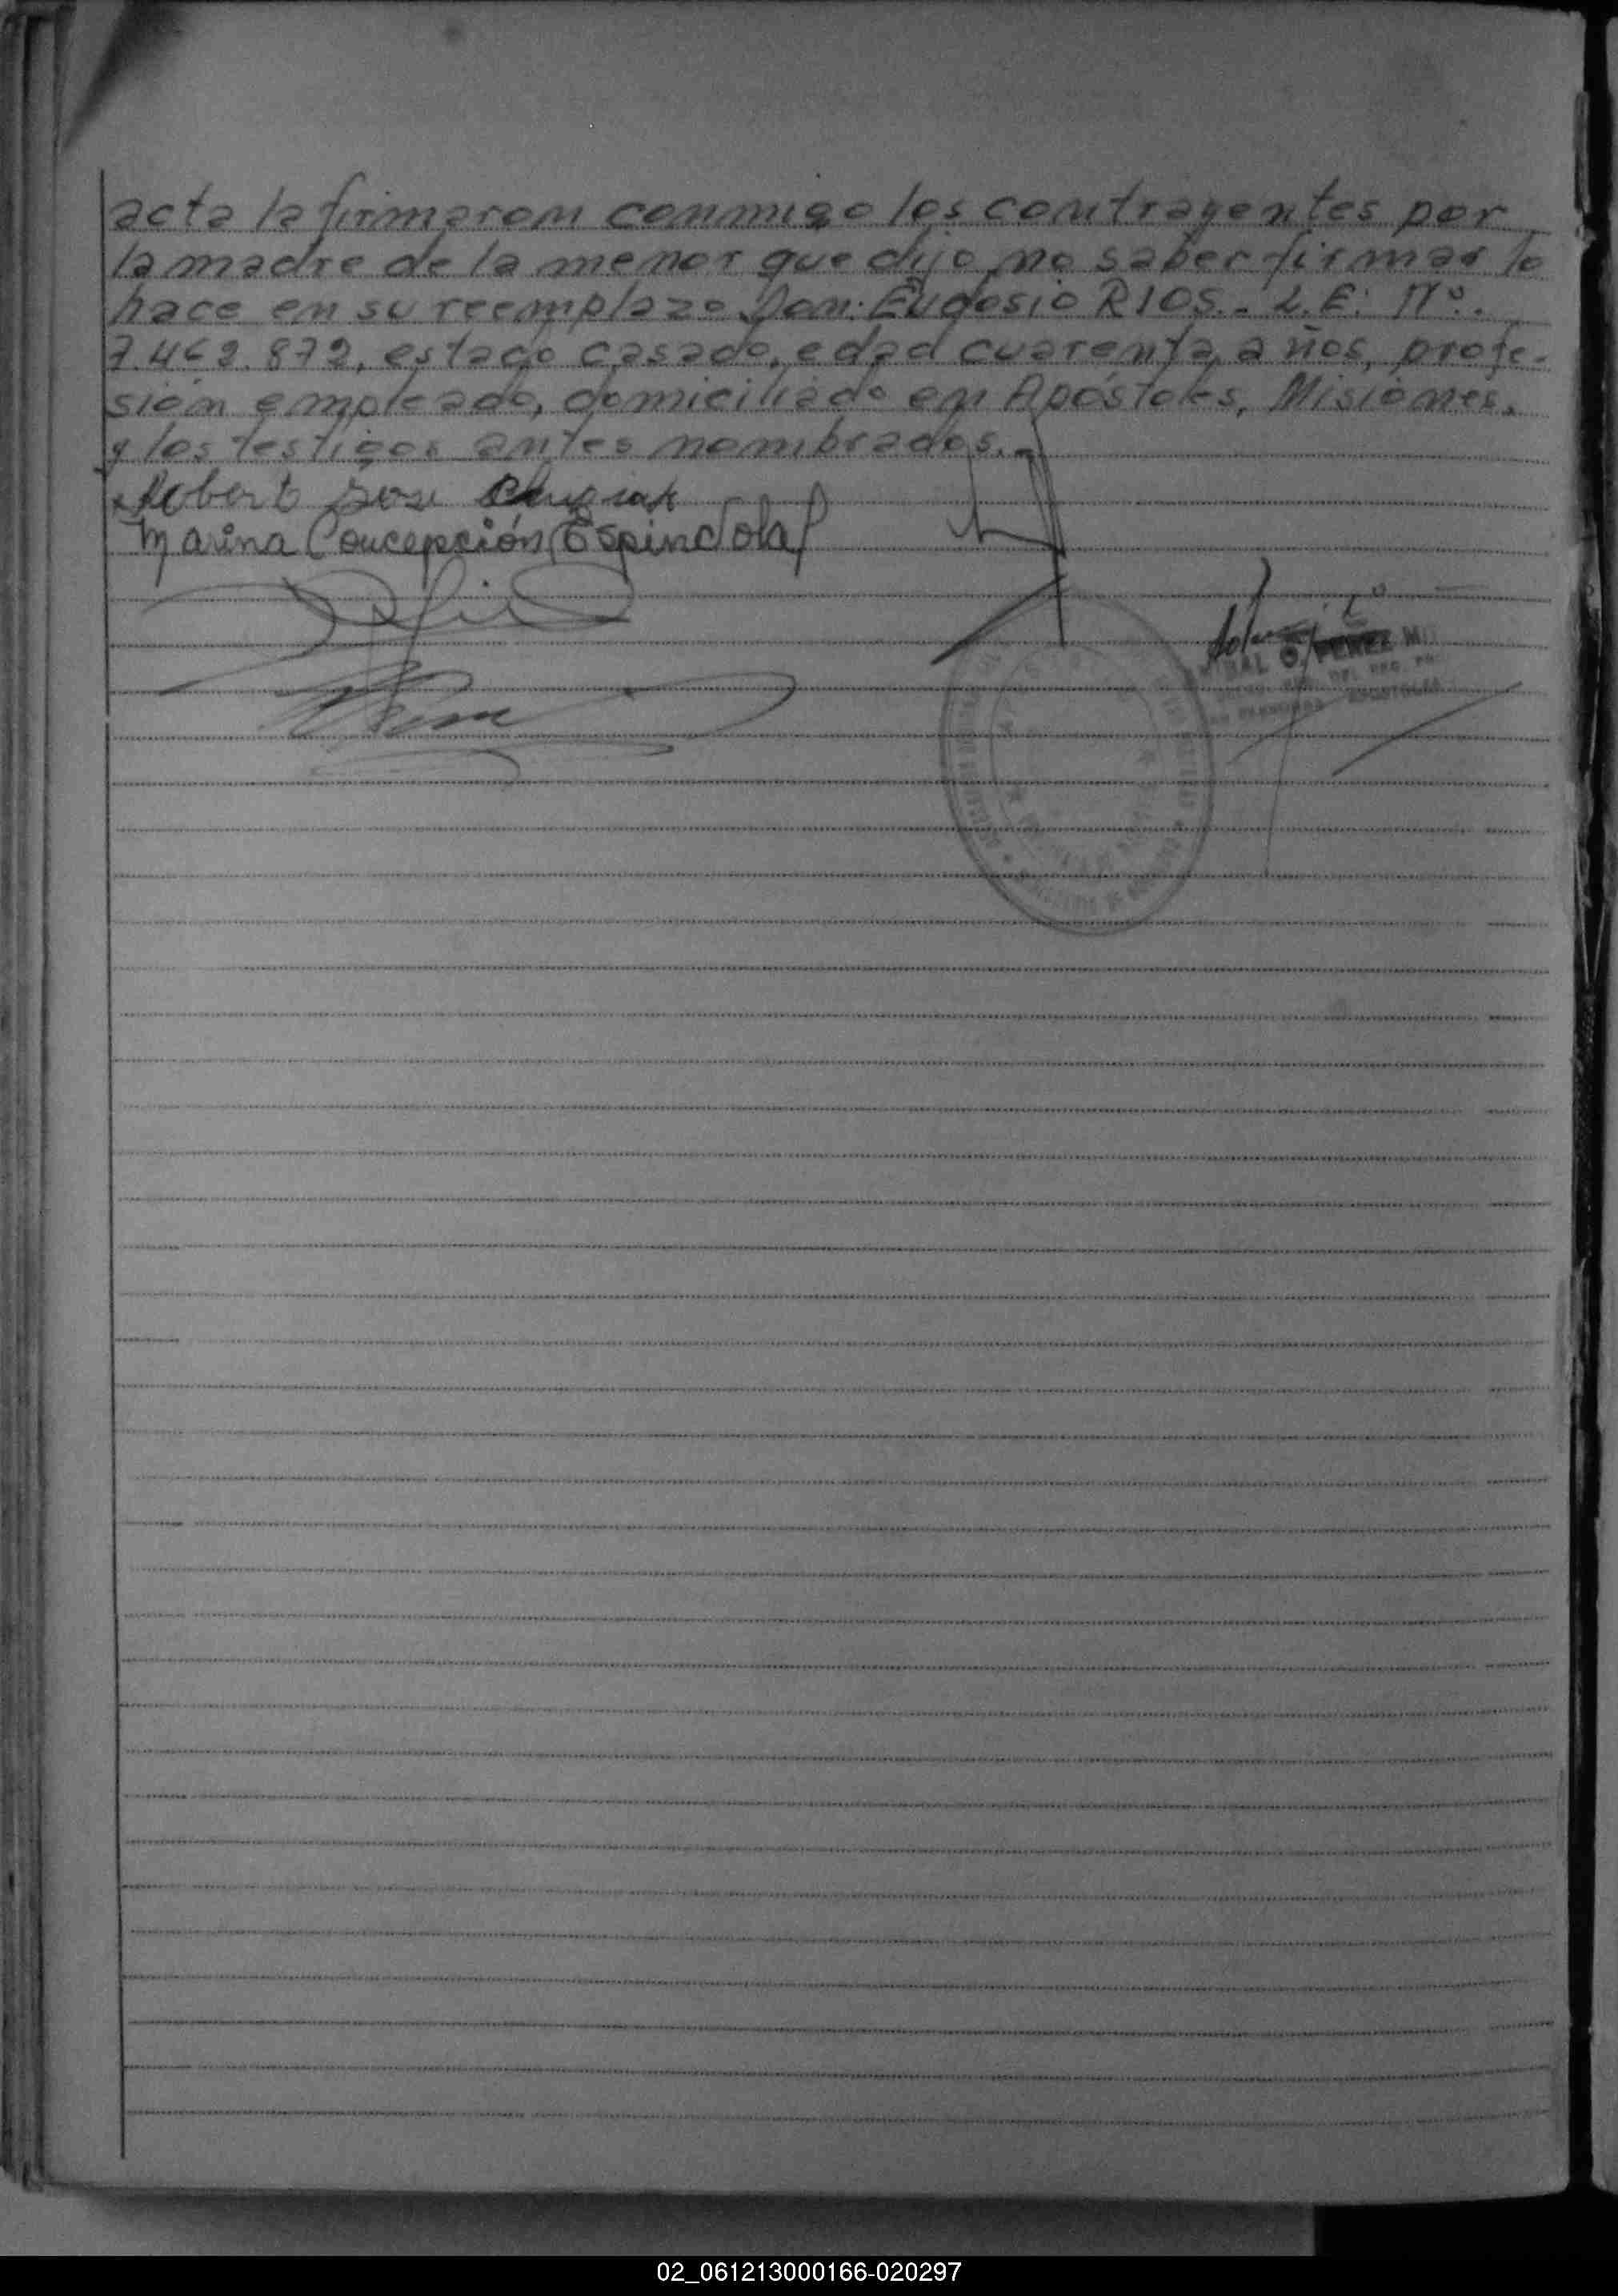 acta la firmaron conmigo los contrayentes por
la madre de la menor que dijo no saber firmar lo
hace en su reemplazo Don: Eudosio RIOS.- L.E: Nº.
7.462.872, estado casado, edad cuarenta años, profe-
sión empleado, domiciliado en Apóstoles, Misiones,
y los testigos antes nombrados.-
Robert Jose
Marina Concepción Espindola
O. PEREZ
02_061213000166-020297